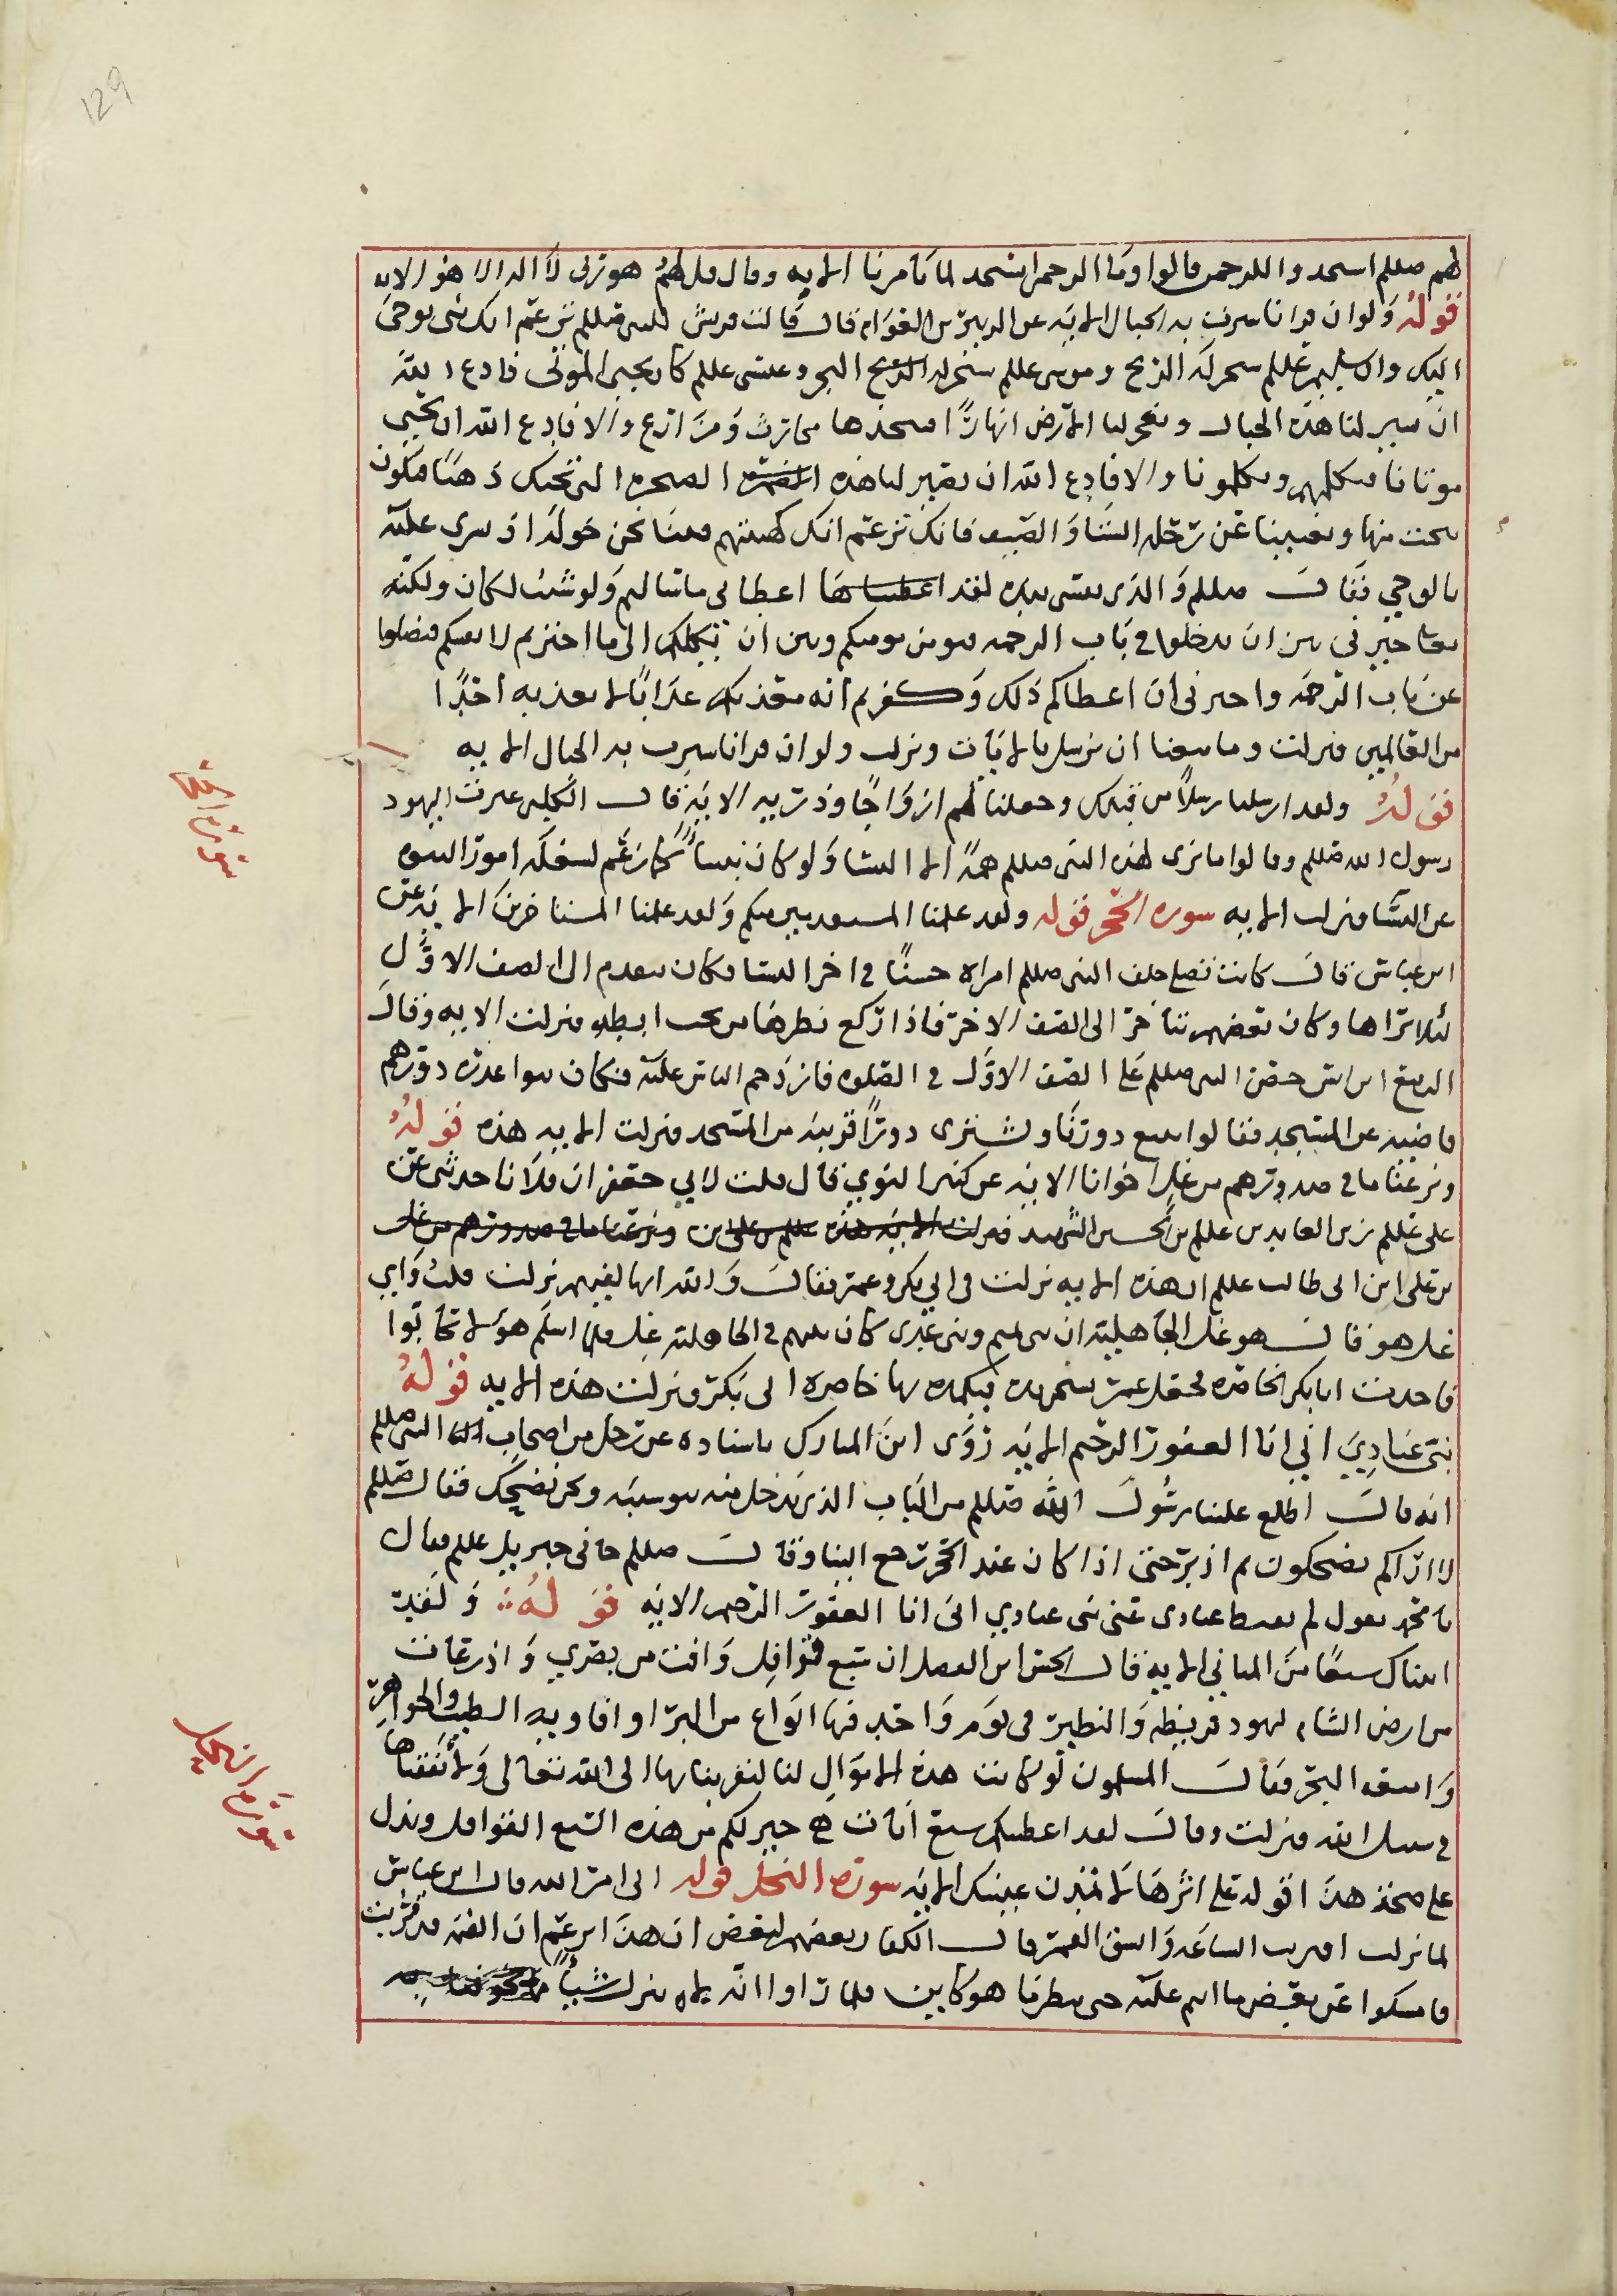 129
لهم صللم اسجدوا للرحمن قالوا وما الرحمن انسجد لما تامرنا الايه وقال قل لهم هو ربي لا اله الا هو الايه
قوله ولو ان قرانا سيرت به الجبال الايه عن الزبير بن العوام قال قالت قريش للنبي صللم تزعم انك نبي يوحى
اليك وان سليمن عللم سخر له الريح وموسى عللم سخر له البحر وعيسى عللم كان يحيي الموتى فادع الله
ان يسير لنا هذه الجبال ويفجر لنا الارض انهارًا فنتخذها محارث ومزارع والا فادع الله ان يحيي
موتانا فنكلمهم ويكلمونا والا فادع الله ان يصير لنا هذه الصخره التي تحتك ذهبًا فيكون
ننحت منها ويغنينا عن رحله الشتا والصيف فانك تزعم انك كهيئتهم فبينا نحن حوله اذ سري عليه
بالوحي فقال صللم والذي نفسي بيده لقد اعطاني ما سالتم ولو شئت لكان ولكنه
خيرني بين ان تدخلوا في باب الرحمه فيومن مومنكم وبين ان يكلكم الى ما اخترتم لانفسكم فتضلوا
عن باب الرحمه واخبرني ان اعطاكم ذلك وكفرتم انه معذبكم عذابًا لا يعذبه احدًا
من العالمين فنزلت وما منعنا ان نرسل بالايات ونزلت ولو ان قرانا سيرت به الجبال الايه
قوله ولقد ارسلنا رسلًا من قبلك وجعلنا لهم ازواجًا وذريه الايه قال الكلبي عيرت اليهود
رسول الله صللم وقالوا ما نرى لهذا النبي صللم همةً الا النسا ولو كان نبيًا كما زعم لشغله امور النبوه
عن النسا فنزلت الايه سوره الحجر قوله ولقد علمنا المستقدمين منكم ولقد علمنا المستاخرين الايه عن
ابن عباس قال كانت تصلي خلف النبي صللم امراه حسنًا في اخر النسا فكان يتقدم الى الصف الاوّل
لئلا يراها وكان بعضهم يتاخر الى الصف الاخر فاذا ركع نظر هكذا من تحت ابطه فنزلت الايه وقال
الربيع ابن انس حضّ النبي صللم على الصف الاوّل في الصلوه فازدحم الناس عليه فكان بنوا عذره دورهم
قاصيه عن المسجد فقالوا نبيع دورنا ونشتري دورًا قريبه من المسجد فنزلت الايه هذه قوله
ونزعنا ما في صدورهم من غل اخوانا الايه عن كثير النوي قال قلت لابي جعفر ان فلانا حدثني عن
علي عللم زين العابدين عللم بن الحسين الشهيد
بن علي ابن ابي طالب عللم ان هذه الايه نزلت في ابي بكر وعمر فقال والله انها لفيهم نزلت قلت واي
غل هو قال هو غل الجاهليه ان بني تميم وبني عدي كان بينهم في الجاهليه غل فلما اسلم هولا تحابّوا
فاخذت ابا بكر الخاصره فجعل علي يسخن يده فيكمد بها خاصره ابي بكر فنزلت هذه الايه قوله
نبئ عبادي اني انا الغفور الرحيم الايه روى ابن المبارك باسناده عن رجل من اصحاب النبي صللم
انه قال اطلع علينا رسول الله صللم من الباب الذي يدخل منه بنو شيبه ونحن نضحك فقال صللم
لا اراكم تضحكون ثم ادبر حتى اذا كان عند الحجر رجع الينا وقال صللم جاني جبريل عللم فقال
يا محمد يقول لم تقنط عبادي عني نبئ عبادي اني انا الغفور الرحيم الايه قوله ولقد
اتيناك سبعًا من المثاني الايه قال الحسن ابن الفضل ان سبع قوافل وافت من بصري واذرعات
من ارض الشام ليهود قريظه والنضير في يوم واحد فيها انواع من البز واوفاويه الطيب والجواهر
وامتعه البحر فقال المسلمون لو كانت هذه الاموال لنا لتقربنا بها الى الله تعالى ولانفقناها
في سبيل الله فنزلت وقال لقد اعطيتكم سبع ايات هي خير لكم من هذه السبع القوافل ويدل
على صحة هذا قوله على اثرها لا تمدن عينيك الايه سوره النحل قوله اتى امر الله قال ابن عباس
لما نزلت اقتربت الساعه وانشق القمر قال الكفار بعضهم لبعض ان هذا يزعم ان القيمه قد قربت
فامسكوا عن بعض ما انتم عليه حتى ننظر ما هو كاين فلما راوا انه لا ينزل شيئًا
سورة الحجر
سورة النحل